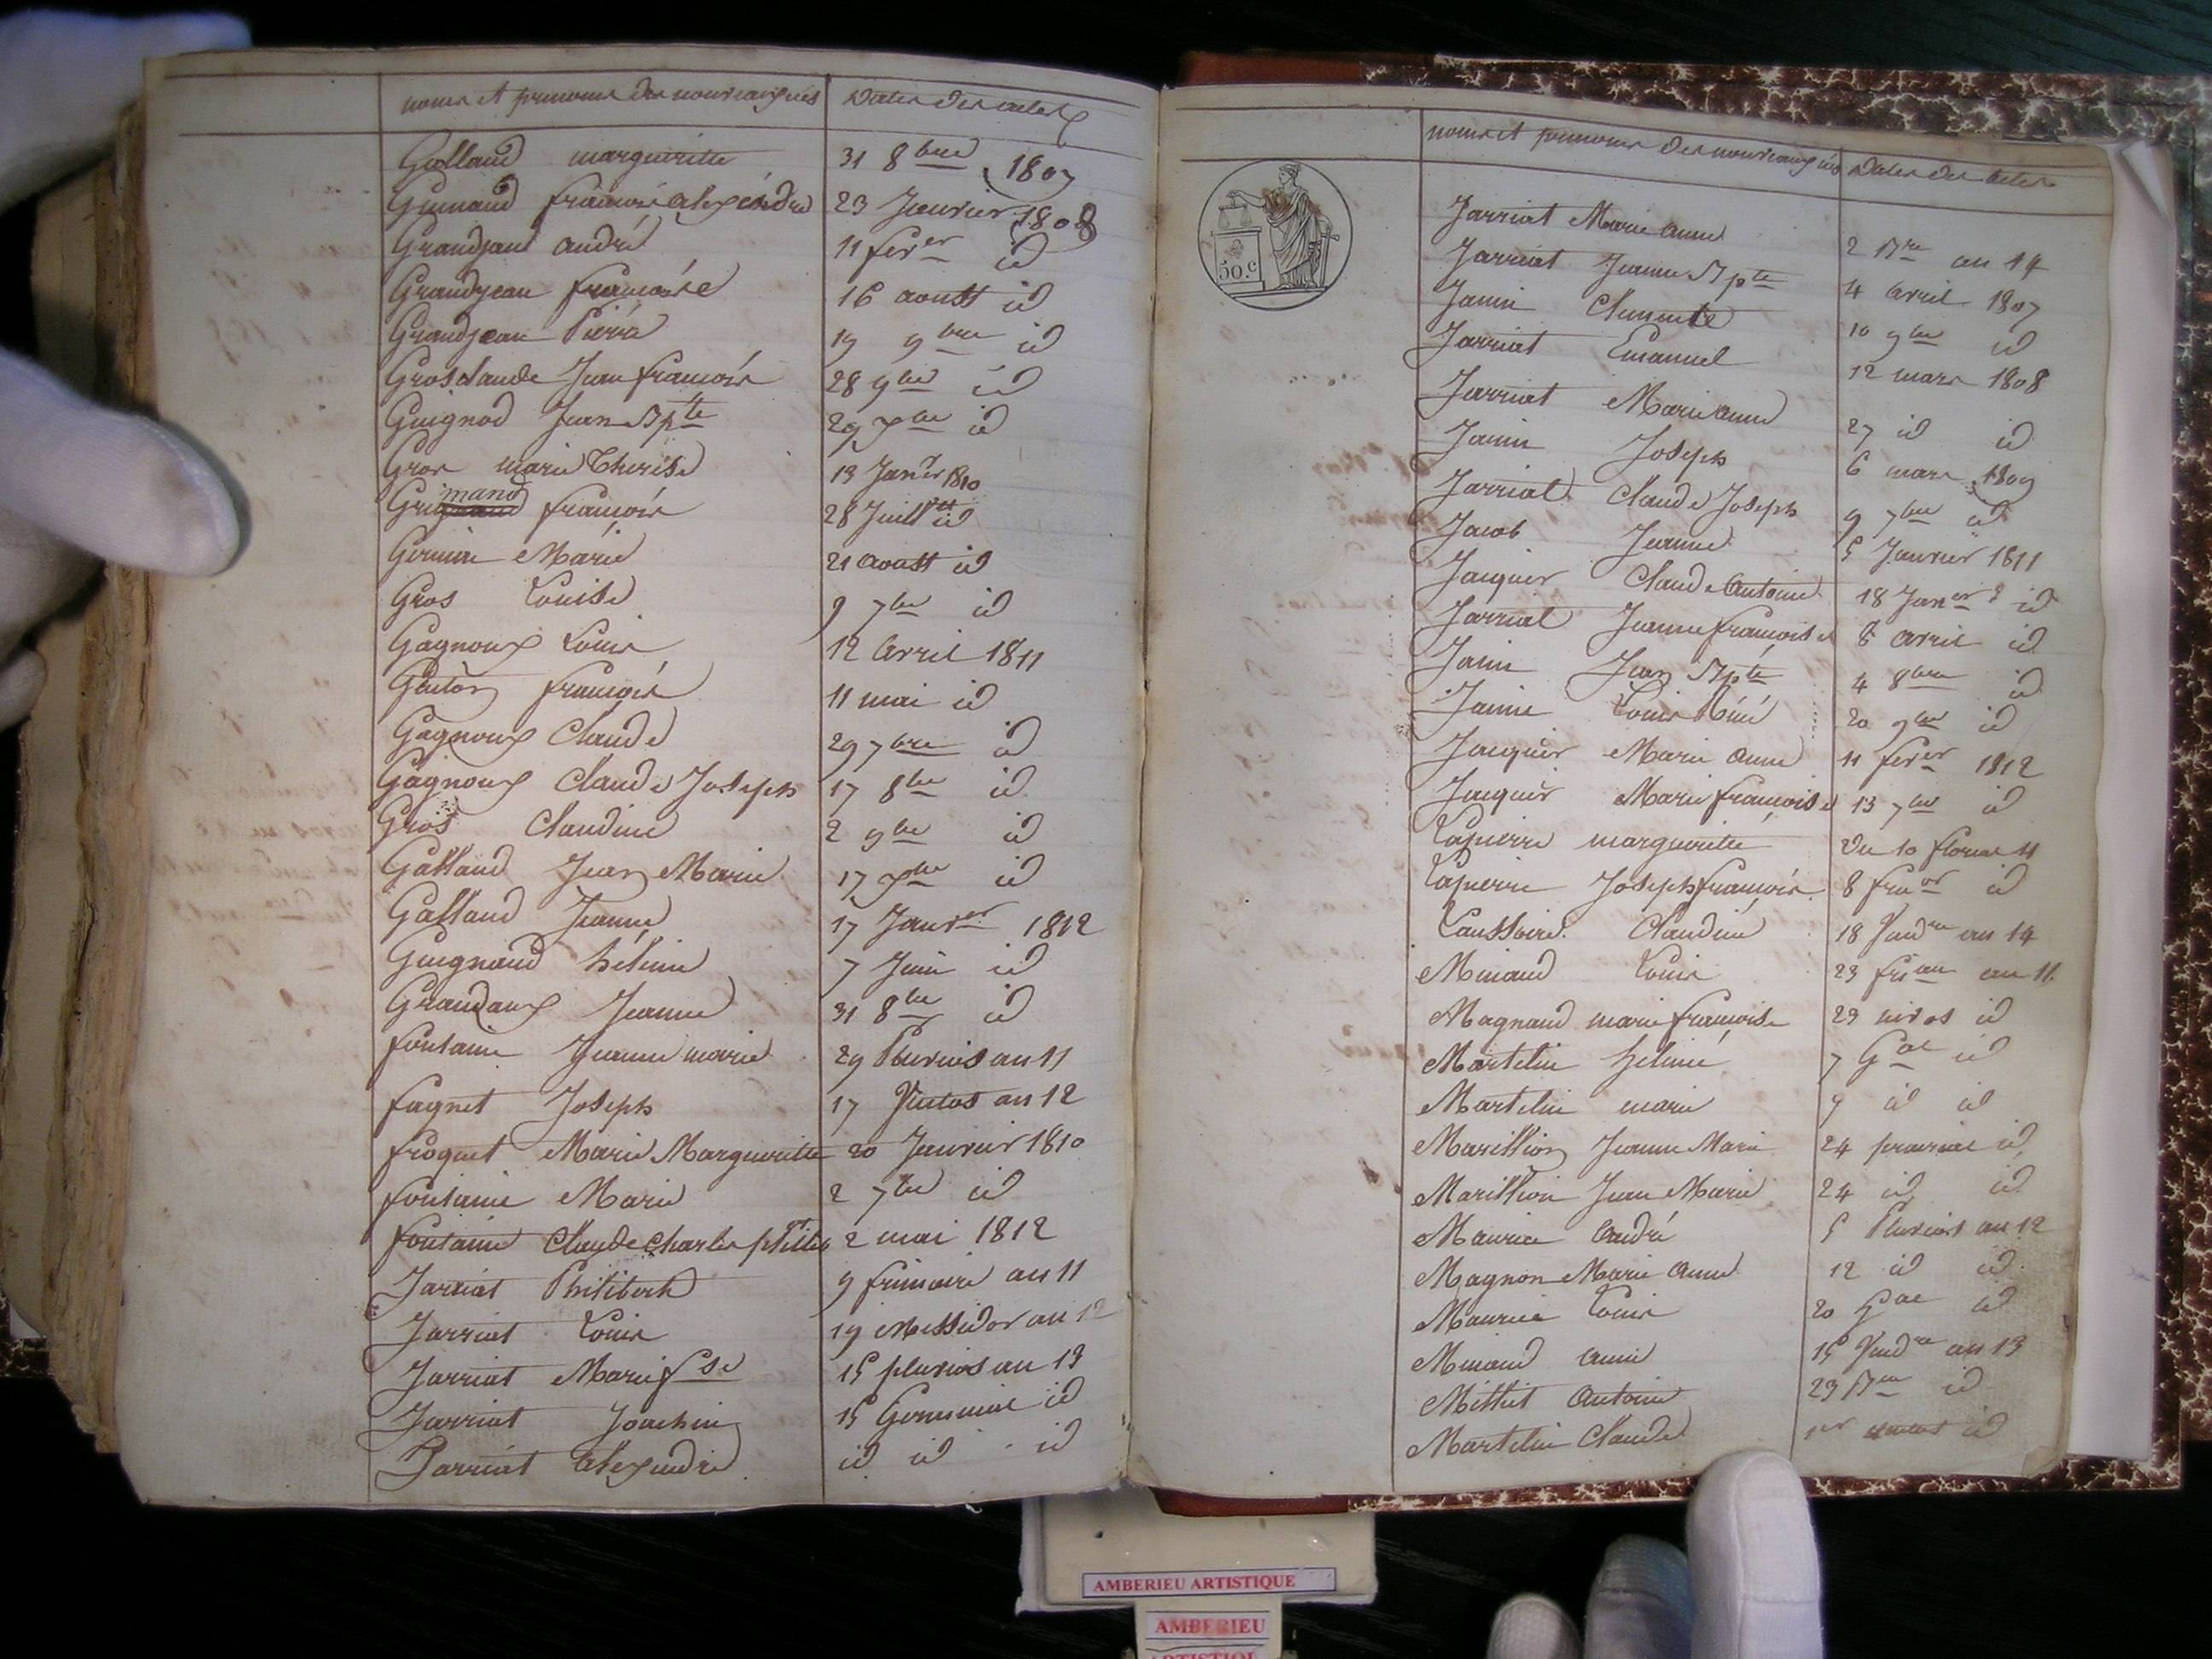 noms et prenoms des nouveaux nés Dates des actes
Golland margueritte 31 8bre 1807
Grimaud francois alexandre 23 Janvier 1808
Grandjeant andré 11 fever id
Grandjean francoise 16 aoust id
Grandjean Pierre 19 9bre id
Grosclaude Jean francois 28 9bre id
Guignod Jean Bpte 29 id
Gros marie Therese 13 Janer 1810
Grimand francois 28 Juillet id
Germin Marie 21 aoust id
Gros Louise 9 7bre id
Gagnoux Louis 12 avril 1811
francois 11 mai id
Gagnoux Claude 29 7bre id
Gagnoux Claude Joseph 17 8bre id
Gros Claudine 2 9bre id
Galland Jean Marie 17 id
Galland Jeanne 17 Janver 1812
Guignaud hélène 7 Juin id
Grandaux Jeanne 31 8bre id
fontaine Jeanne marie 29 Pluvios an 11
fagnet Joseph 17 Ventos an 12
froquet Marie Margueritte 20 Janvier 1810
fontaine Marie 2 7bre id
fontaine Claude Charles 2 mai 1812
Jarriat Philibert 9 frimaire an 11
Jarriat Louis 19 Messidor an 12
Jarriat Marie fse 15 pluvios an 13
Jarriat Joachim 15 Germinal id
Jarriat alexandre id id id
noms et prenoms des nouveaux nés Dates des actes
50.c
Jarriat Marie anne 2 Bre an 14
Jarriat Jeanne Bpte 4 avril 1807
Janin Clemente 10 9bre id
Jarriat Emanuel 12 mars 1808
Jarriat Marie anne 27 id id
Janin Joseph 6 mars 1809
Jarriat Claude Joseph 9 7bre id
Jacob Jeanne 5 Janvier 1811
Jacquier Claude Antoine 18 Janer id
Jarriat Jeanne francoise 8 avril id
Janin Jean Bpte 4 8bre id
Janin Louis Réné 20 9bre id
Jacquier Marie anne 11 fever 1812
Jacquier Marie francoise 13 7bre id
Lapierre margueritte Du 10 floreal 11
Lapierre Joseph francois 8 id
Claudine 18 Vendre an 14
Minaud Louis 23 friare an 11
Magnaud marie francoise 29 nivos id
Martelin hélène 7 Gal id
Martelin marie 9 id id
Marillion Jeanne Marie 24 prairial id
Marillion Jean Marie 24 id id
Maurice André 5 Pluvios an 12
Magnon Marie anne 12 id id
Maurice Louis 20 Gal id
Minaud anne 15 Vendre an 13
Millet Antoine 23 Bre id
Martelin Claude 1er id
AMBERIEU ARTISTIQUE
AMBERIEU
ARTISTIQUE